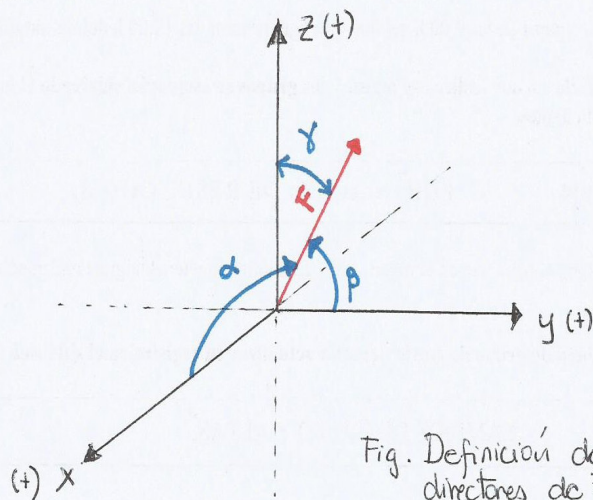 Z (+)
γ
F
α
β
y (+)
(+) X
Fig. Definición
directores de